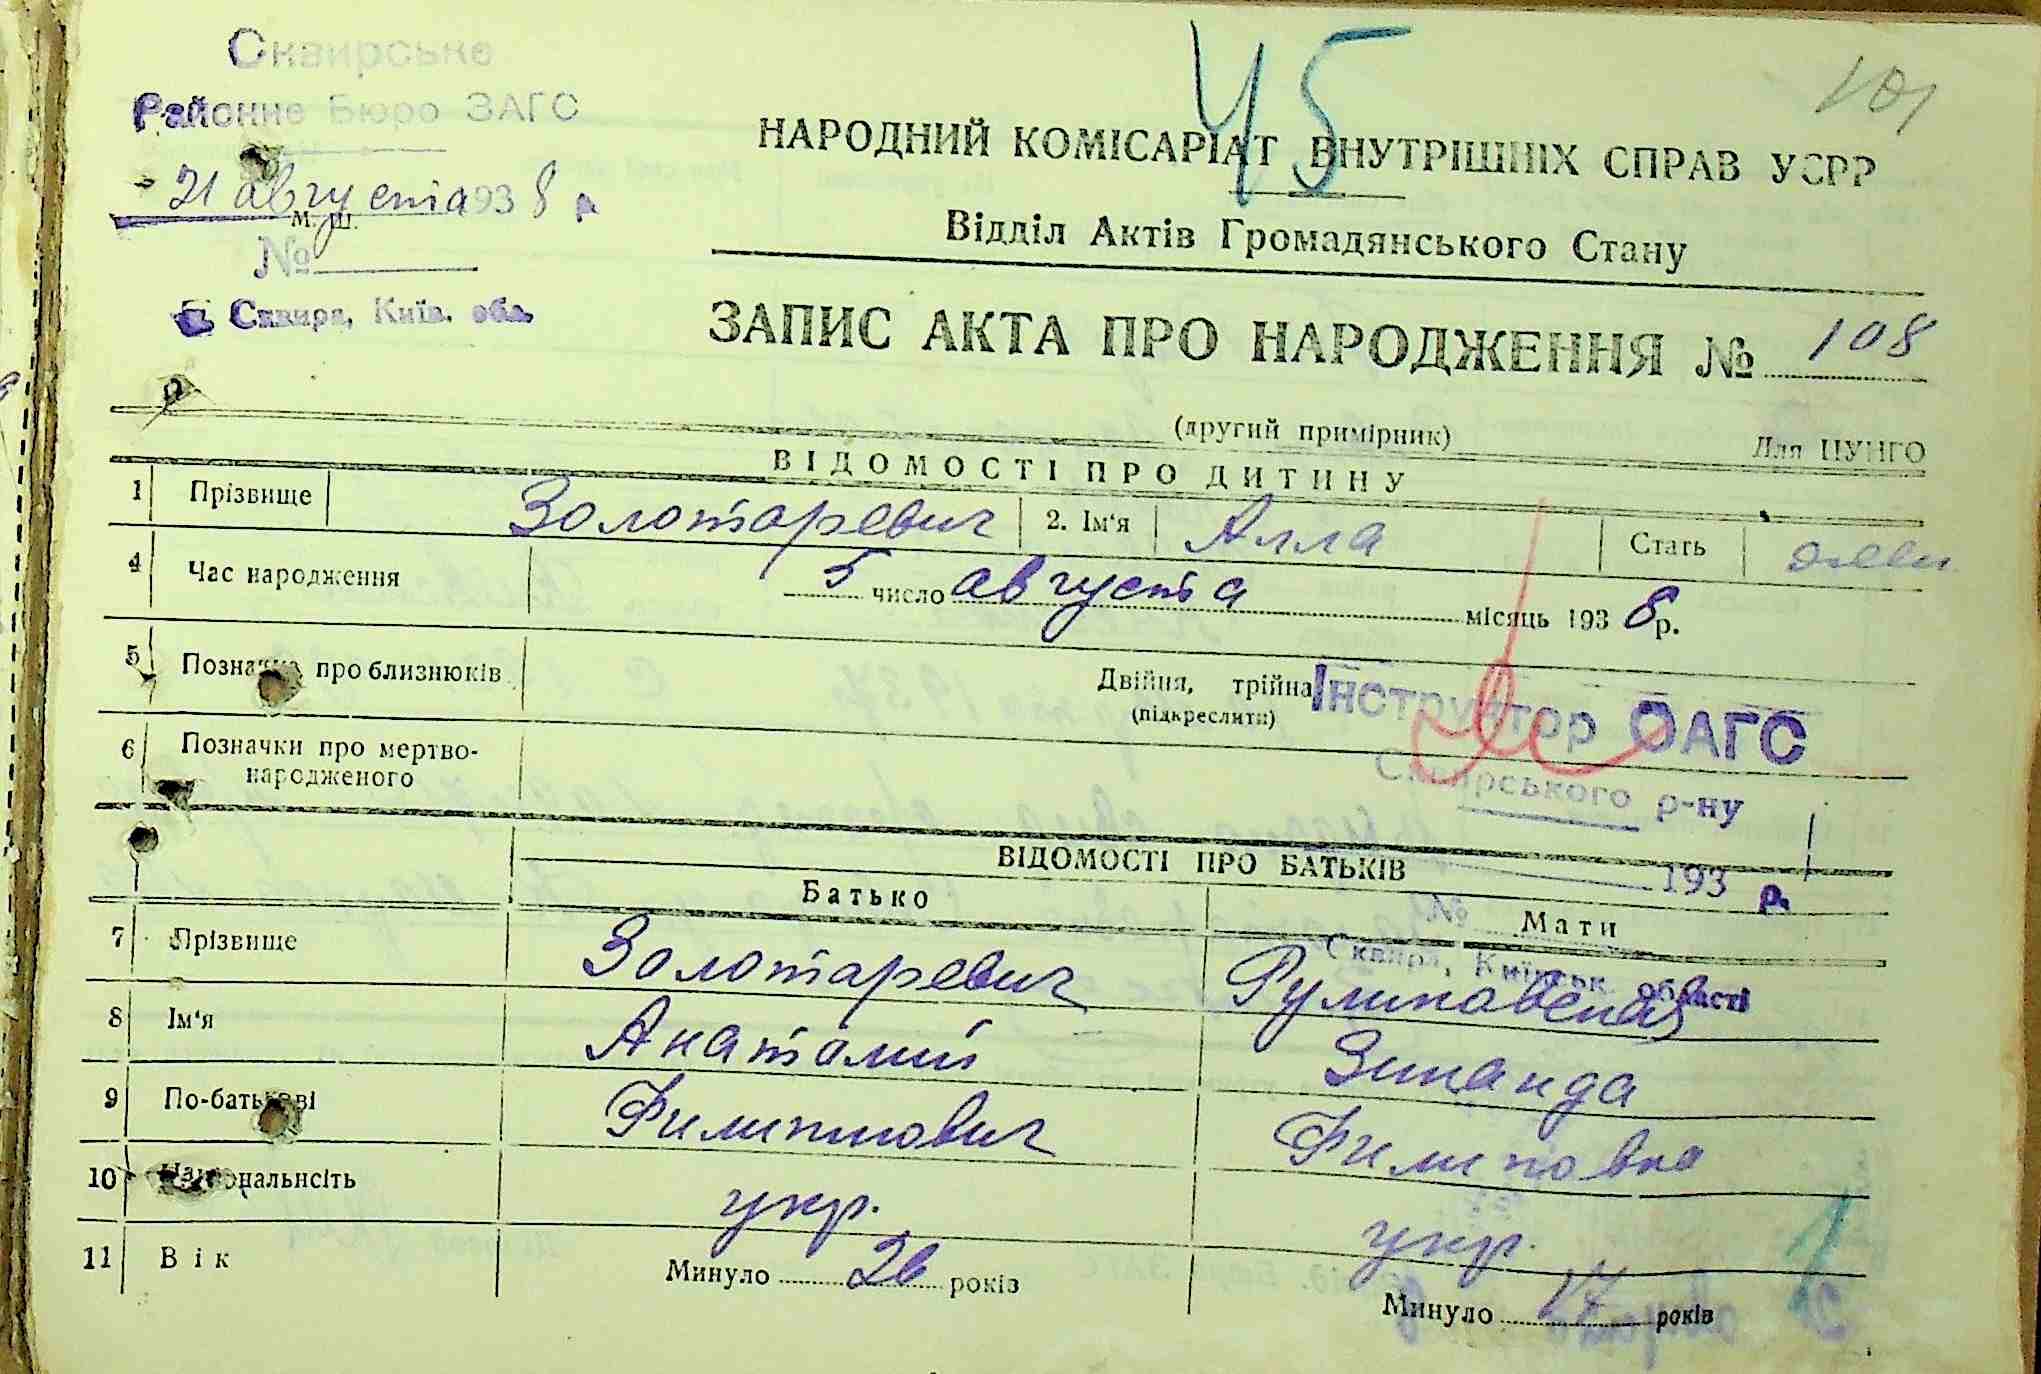 Сквирське
Районне Бюро ЗАГС
21 августа 1938 р
м. ш.
№
Сквира, Київ. обл.
45
101
НАРОДНИЙ КОМІСАРІАТ ВНУТРІШНІХ СПРАВ УСРР
Відділ Актів Громадянського Стану
ЗАПИС АКТА ПРО НАРОДЖЕННЯ № 108
(другий примірник) Для ЦУНГО
ВІДОМОСТІ ПРО ДИТИНУ
1 Прізвище Золотаревич 2. Ім'я Алла Стать
4 Час народження 5 число августа місяць 1938 р.
5 Позначка про близнюків Двійня, трійна
(підкреслити)
Інструктор ОАГС
Сквирського р-ну
6 Позначки про мертво-
народженого
ВІДОМОСТІ ПРО БАТЬКІВ
193 р.
Батько Мати
№
Сквира, Київськ. області
7 Прізвище Золотаревич
8 Ім'я Анатолий Зинаида
9 По-батькові Филиппович Филиповна
10 Національність укр. укр.
11 Вік Минуло 26 років Минуло 17 років